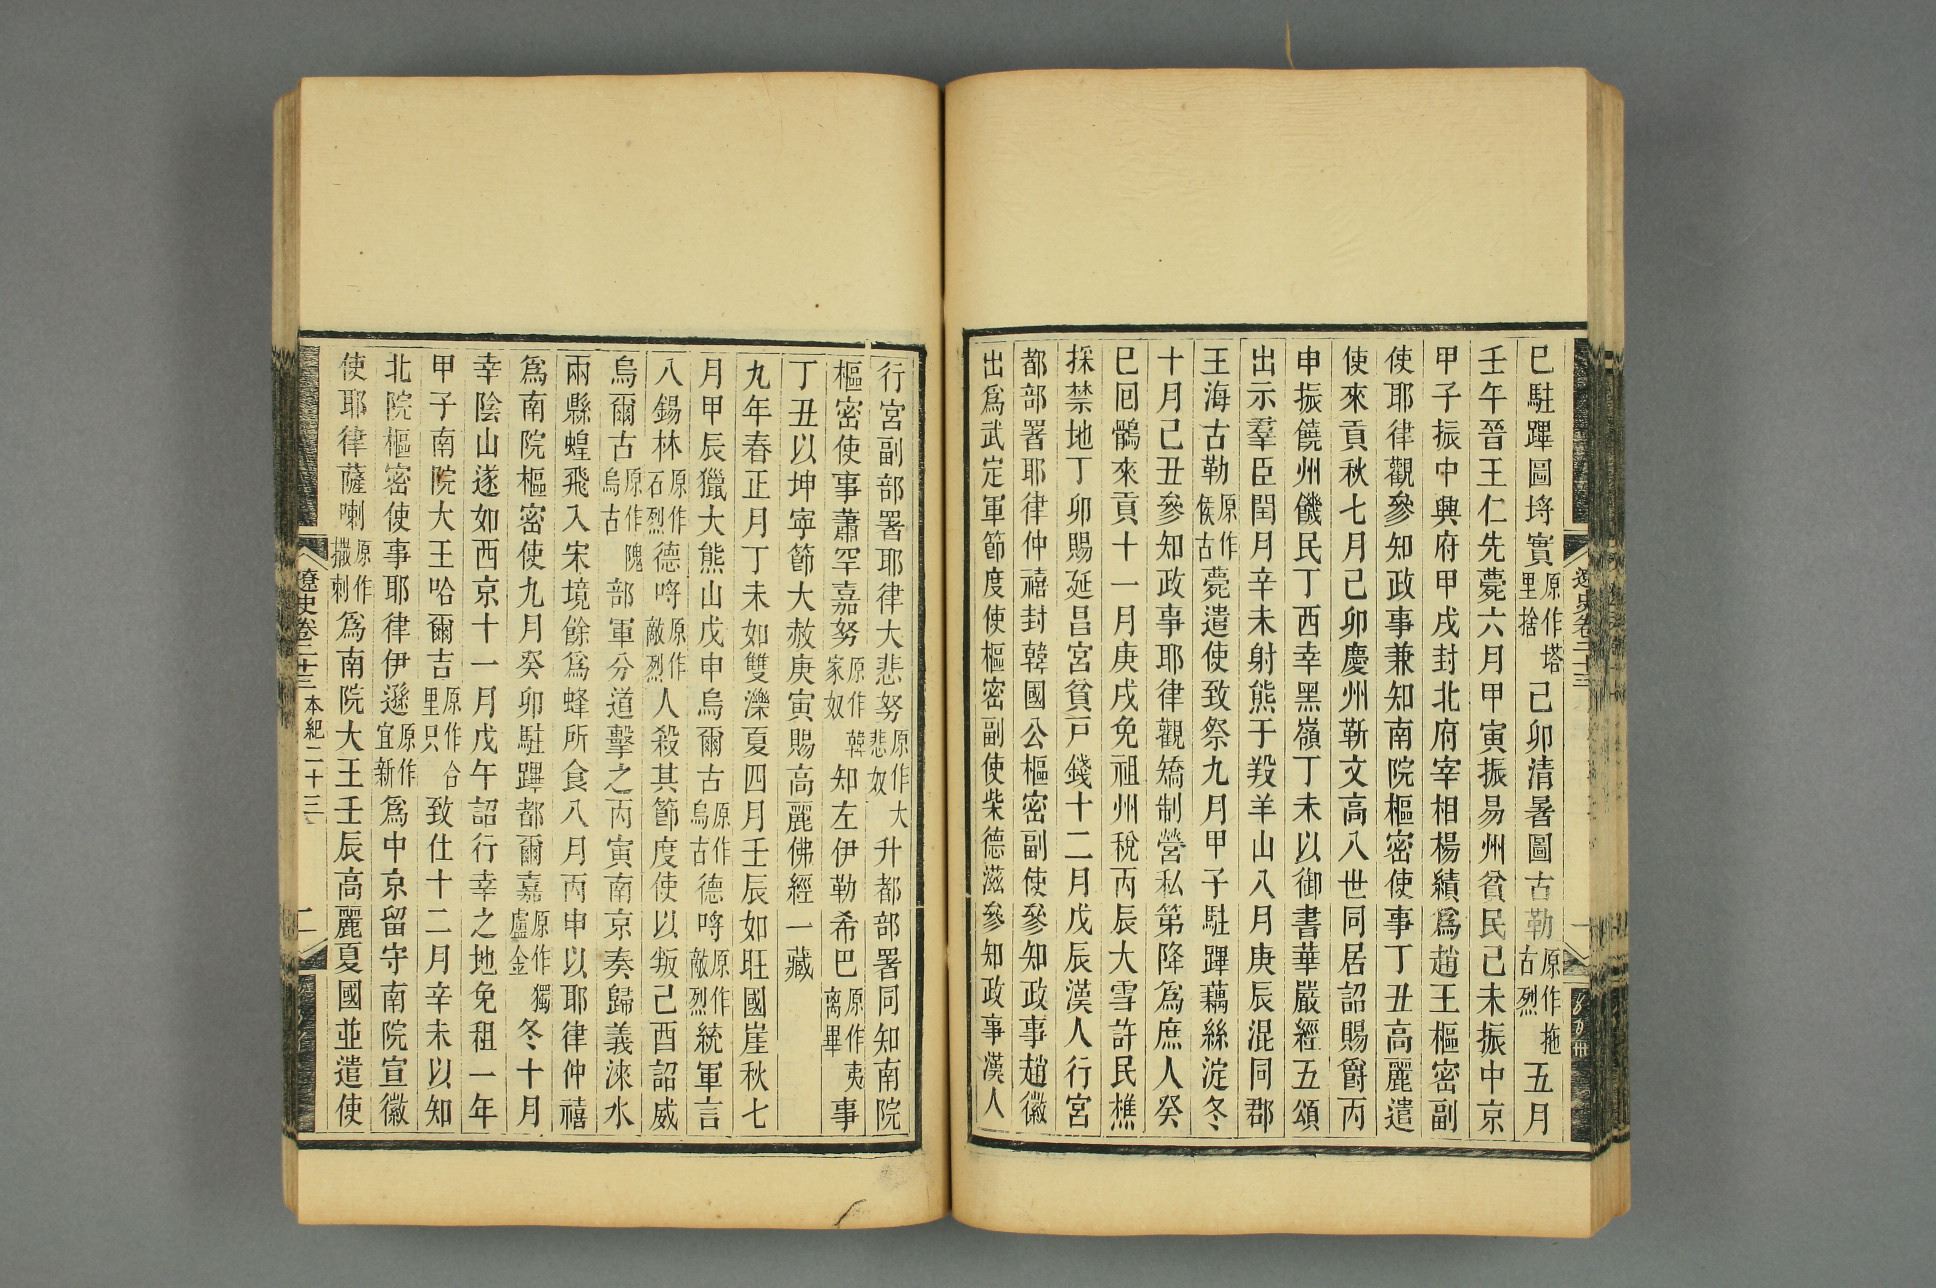 巳駐蹕圖埒實原作塔里捨己卯清暑圖古勒原作拖古烈五月
壬午晉王仁先薨六月甲寅振易州貧民己未振中京
甲子振中興府甲戌封北府宰相楊績爲趙王樞密副
使耶律觀參知政事兼知南院樞密使事丁丑高麗遣
使來貢秋七月己卯慶州靳文高八世同居詔賜爵丙
申振饒州饑民丁酉幸黑嶺丁未以御書華嚴經五頌
出示羣臣閏月辛未射熊于羖羊山八月庚辰混同郡
王海古勒原作侯古薨遣使致祭九月甲子駐蹕藕絲淀冬
十月己丑參知政事耶律觀矯制營私第降爲庶人癸
巳回鶻來貢十一月庚戌免祖州稅丙辰大雪許民樵
採禁地丁卯賜延昌宮貧戸錢十二月戊辰漢人行宮
都部署耶律仲禧封韓國公樞密副使參知政事趙徽
出爲武定軍節度使樞密副使柴德滋參知政事漢人
行宮副部署耶律大悲努原作大悲奴升都部署同知南院
樞密使事蕭罕嘉努原作韓家奴知左伊勒希巴原作夷离畢事
丁丑以坤寧節大赦庚寅賜高麗佛經一藏
九年春正月丁未如雙濼夏四月壬辰如旺國崖秋七
月甲辰獵大熊山戊申烏爾古原作烏古德哷原作敵烈統軍言
八錫林原作石烈德哷原作敵烈人殺其節度使以叛己酉詔威
烏爾古原作隗烏古部軍分道擊之丙寅南京奏歸義淶水
兩縣蝗飛入宋境餘爲蜂所食八月丙申以耶律仲禧
爲南院樞密使九月癸卯駐蹕都爾嘉原作獨盧金冬十月
幸陰山遂如西京十一月戊午詔行幸之地免租一年
甲子南院大王哈爾吉原作合里只致仕十二月辛未以知
北院樞密使事耶律伊遜原作宜新爲中京留守南院宣徽
使耶律薩喇原作撒剌爲南院大王壬辰高麗夏國並遣使
遼史卷二十三 本紀二十三 二